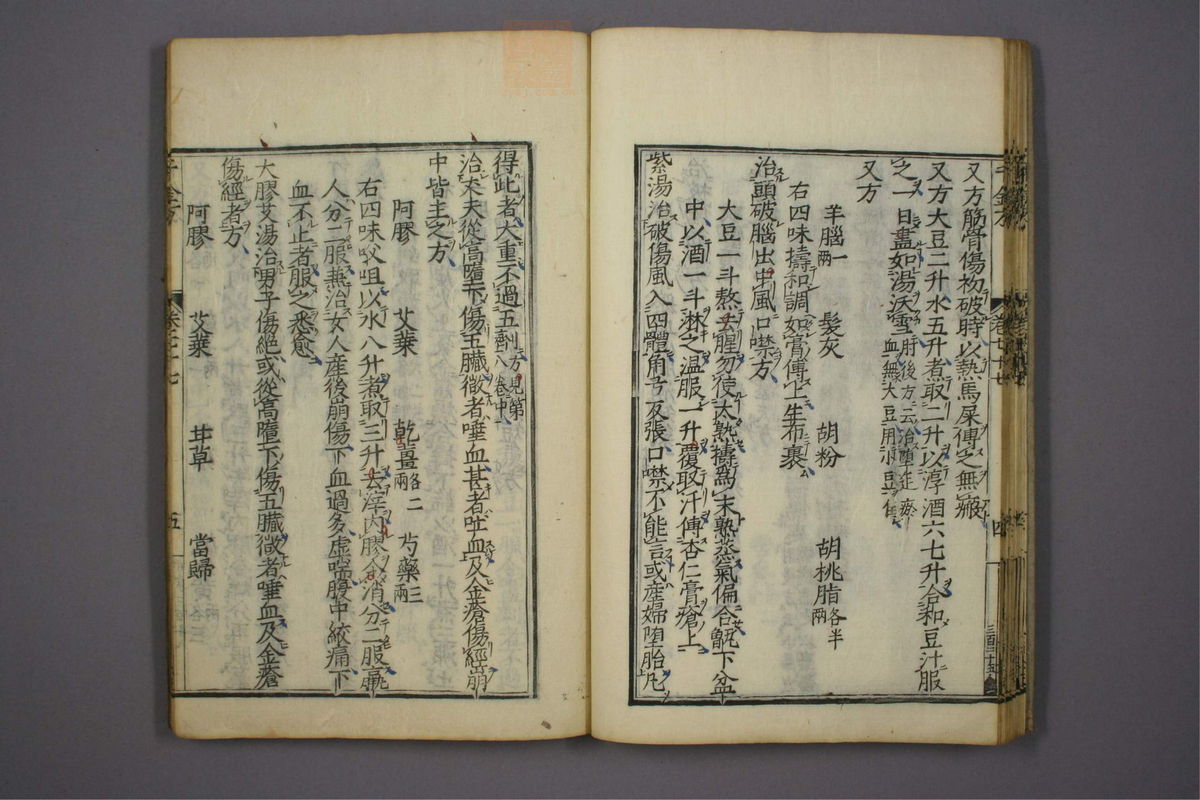 又方筋骨傷初破時以熱馬屎傅之無瘢
又方大豆二升水五升煮取二升以淳酒六七升合和豆汁服
之一日盡如湯沃雪肘後方云治墮迮瘀血無大豆用小豆佳
又方
羊腦一兩 髮灰 胡粉 胡桃脂各半兩
右四味擣和調如膏傅上生布裹
治頭破腦出中風口噤方
大豆一斗熬去腥勿使太熟擣爲末熟蒸氣偏合甑下盆
中以酒一斗淋之温服一升覆取汗傅杏仁膏瘡上
紫湯治破傷風入四體角弓反張口噤不能言或産婦墮胎凡
得此者大重不過五劑方見第八卷中
治丈夫從高墮下傷五臟微者唾血甚者吐血及金瘡傷經崩
中皆主之方
阿膠 艾葉 乾薑各二兩 芍藥三兩
右四味㕮咀以水八升煮取三升去滓内膠令消分二服羸
人分三服兼治女人産後崩傷下血過多虚喘腹中絞痛下
血不止者服之悉愈
大膠艾湯治男子傷絶或從高墮下傷五臟微者唾血及金瘡
傷經者方
阿膠 艾葉 甘草 當歸
千金方
五
四